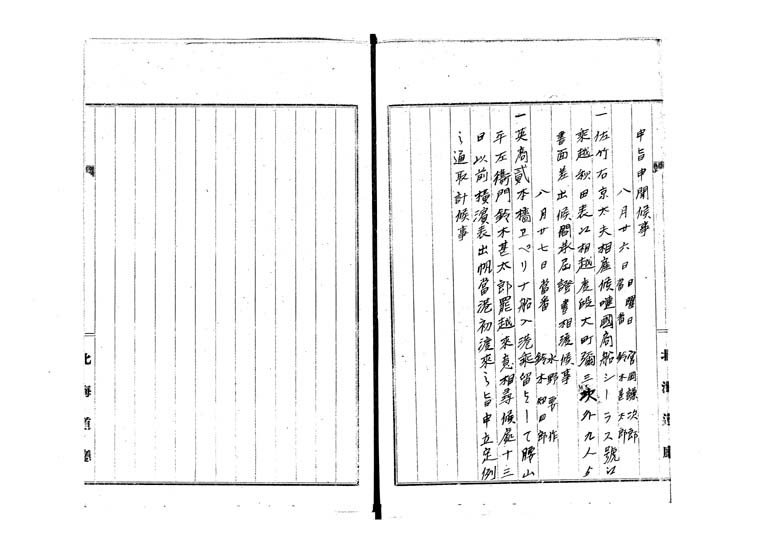 申旨申聞候事
八月廿六日 日曜日 當番 宮岡謙次郎 鈴木甚太郎
一佐竹右京大夫相雇候嗹國商船シーラス號江
乘越秋田表江相越度段大町彌三次外九人ゟ
書面差出候間承届證書相渡候事
八月廿七日當番 水野要作 鈴木知四郎
一英商貳本檣ヱペリナ船入港乘留として勝山
平左衛門鈴木甚太郎罷越来意相尋候處十三
日以前横濱表出帆當港初渡来之旨申立定例
之通取計候事
北海道廳
北海道廳